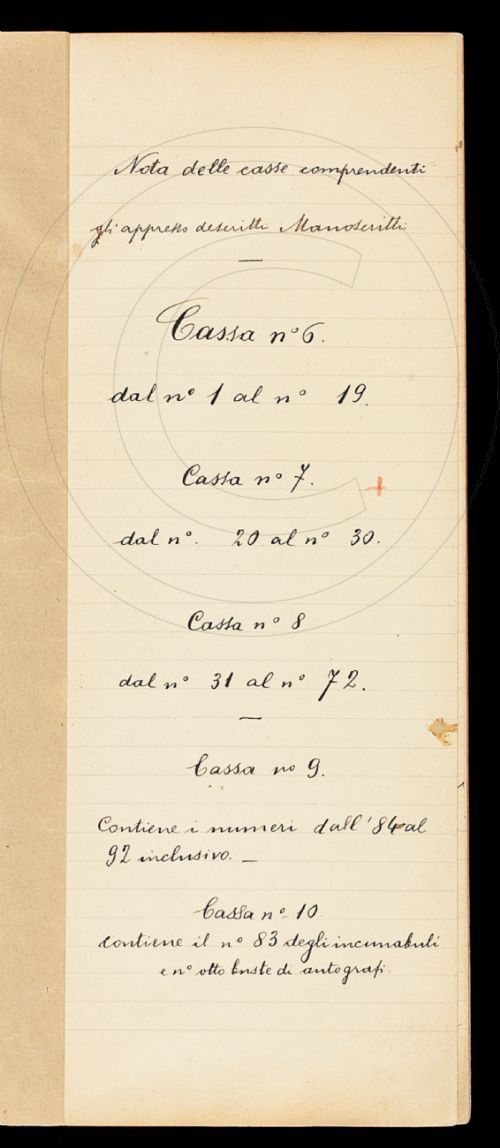 Nota delle casse comprendenti
gli appresso descritti Manoscritti
Cassa nº 6.
dal nº 1 al nº 19.
Cassa nº 7.
dal nº. 20 al nº 30.
Cassa nº 8
dal nº 31 al nº 72.
Cassa nº 9.
Contiene i numeri dall' 84 al
92 inclusivo. —
Cassa nº 10.
contiene il nº 83 degli incunabuli
e nº otto buste di autografi.